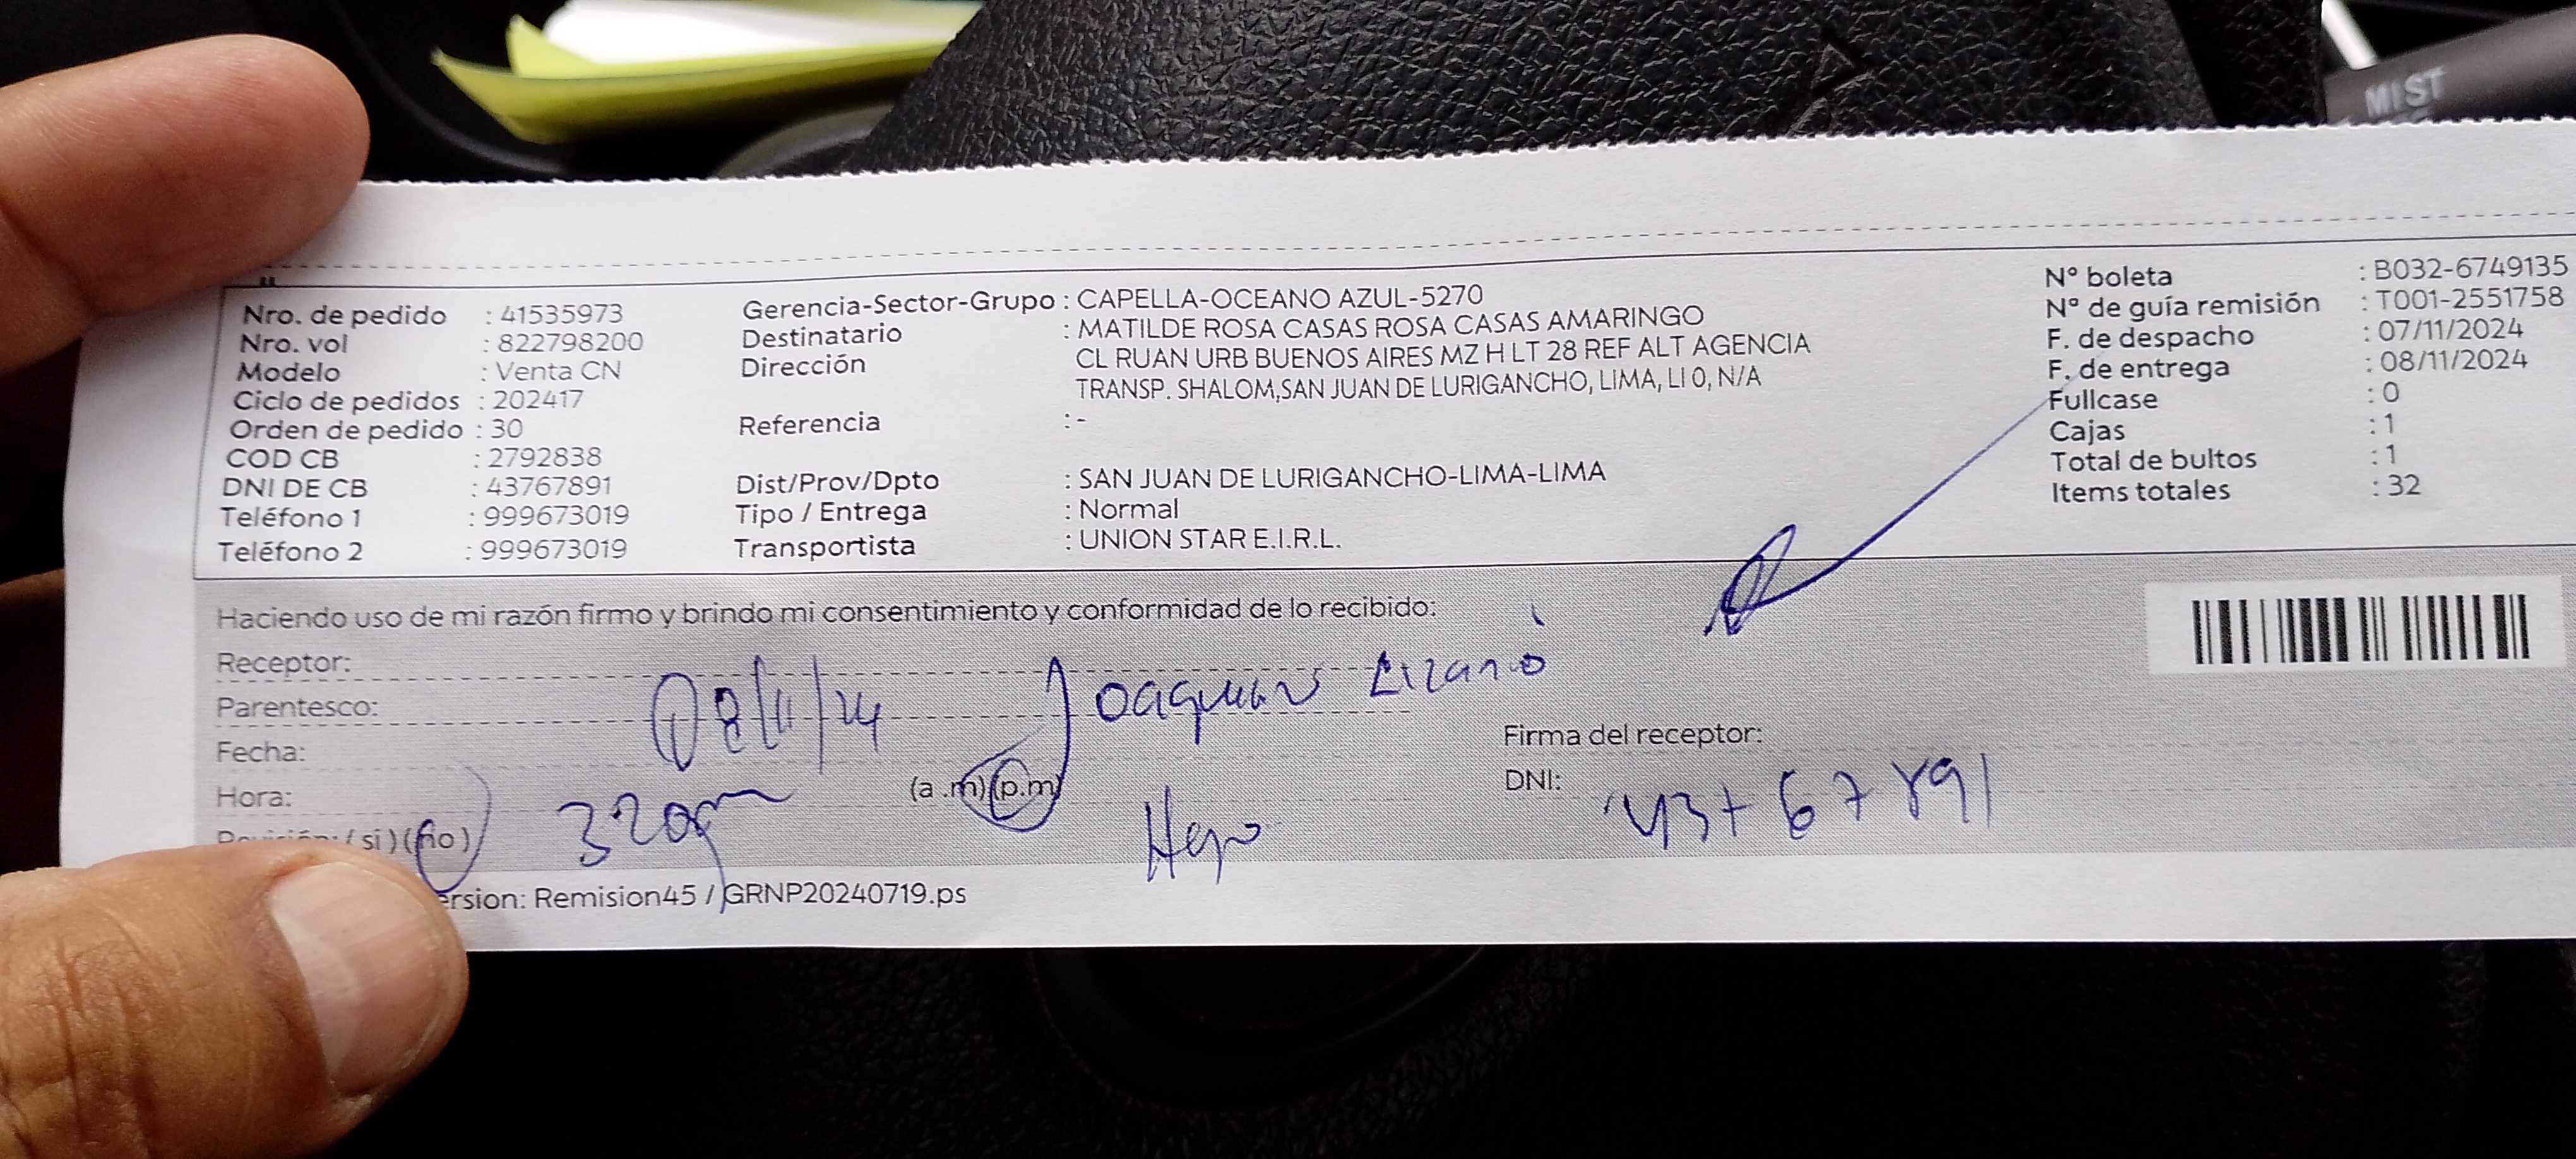 MIST
Nro. de pedido : 41535973
Nro. vol : 822798200
Modelo : Venta CN
Ciclo de pedidos : 202417
Orden de pedido : 30
COD CB : 2792838
DNI DE CB : 43767891
Teléfono 1 : 999673019
Teléfono 2 : 999673019
Gerencia-Sector-Grupo : CAPELLA-OCEANO AZUL-5270
Destinatario : MATILDE ROSA CASAS ROSA CASAS AMARINGO
Dirección CL RUAN URB BUENOS AIRES MZ H LT 28 REF ALT AGENCIA
TRANSP. SHALOM,SAN JUAN DE LURIGANCHO, LIMA, LI 0, N/A
Referencia : -
Dist/Prov/Dpto : SAN JUAN DE LURIGANCHO-LIMA-LIMA
Tipo / Entrega : Normal
Transportista : UNION STAR E.I.R.L.
N° boleta : B032-6749135
N° de guía remisión : T001-2551758
F. de despacho : 07/11/2024
F. de entrega : 08/11/2024
Fullcase : 0
Cajas : 1
Total de bultos : 1
Items totales : 32
Haciendo uso de mi razón firmo y brindo mi consentimiento y conformidad de lo recibido:
Receptor:
Parentesco: 08/11/24 Joaquin
Fecha:
Hora: (a .m)(p.m)
( si ) (no)
Firma del receptor:
DNI: 43767891
ersion: Remision45 / GRNP20240719.ps